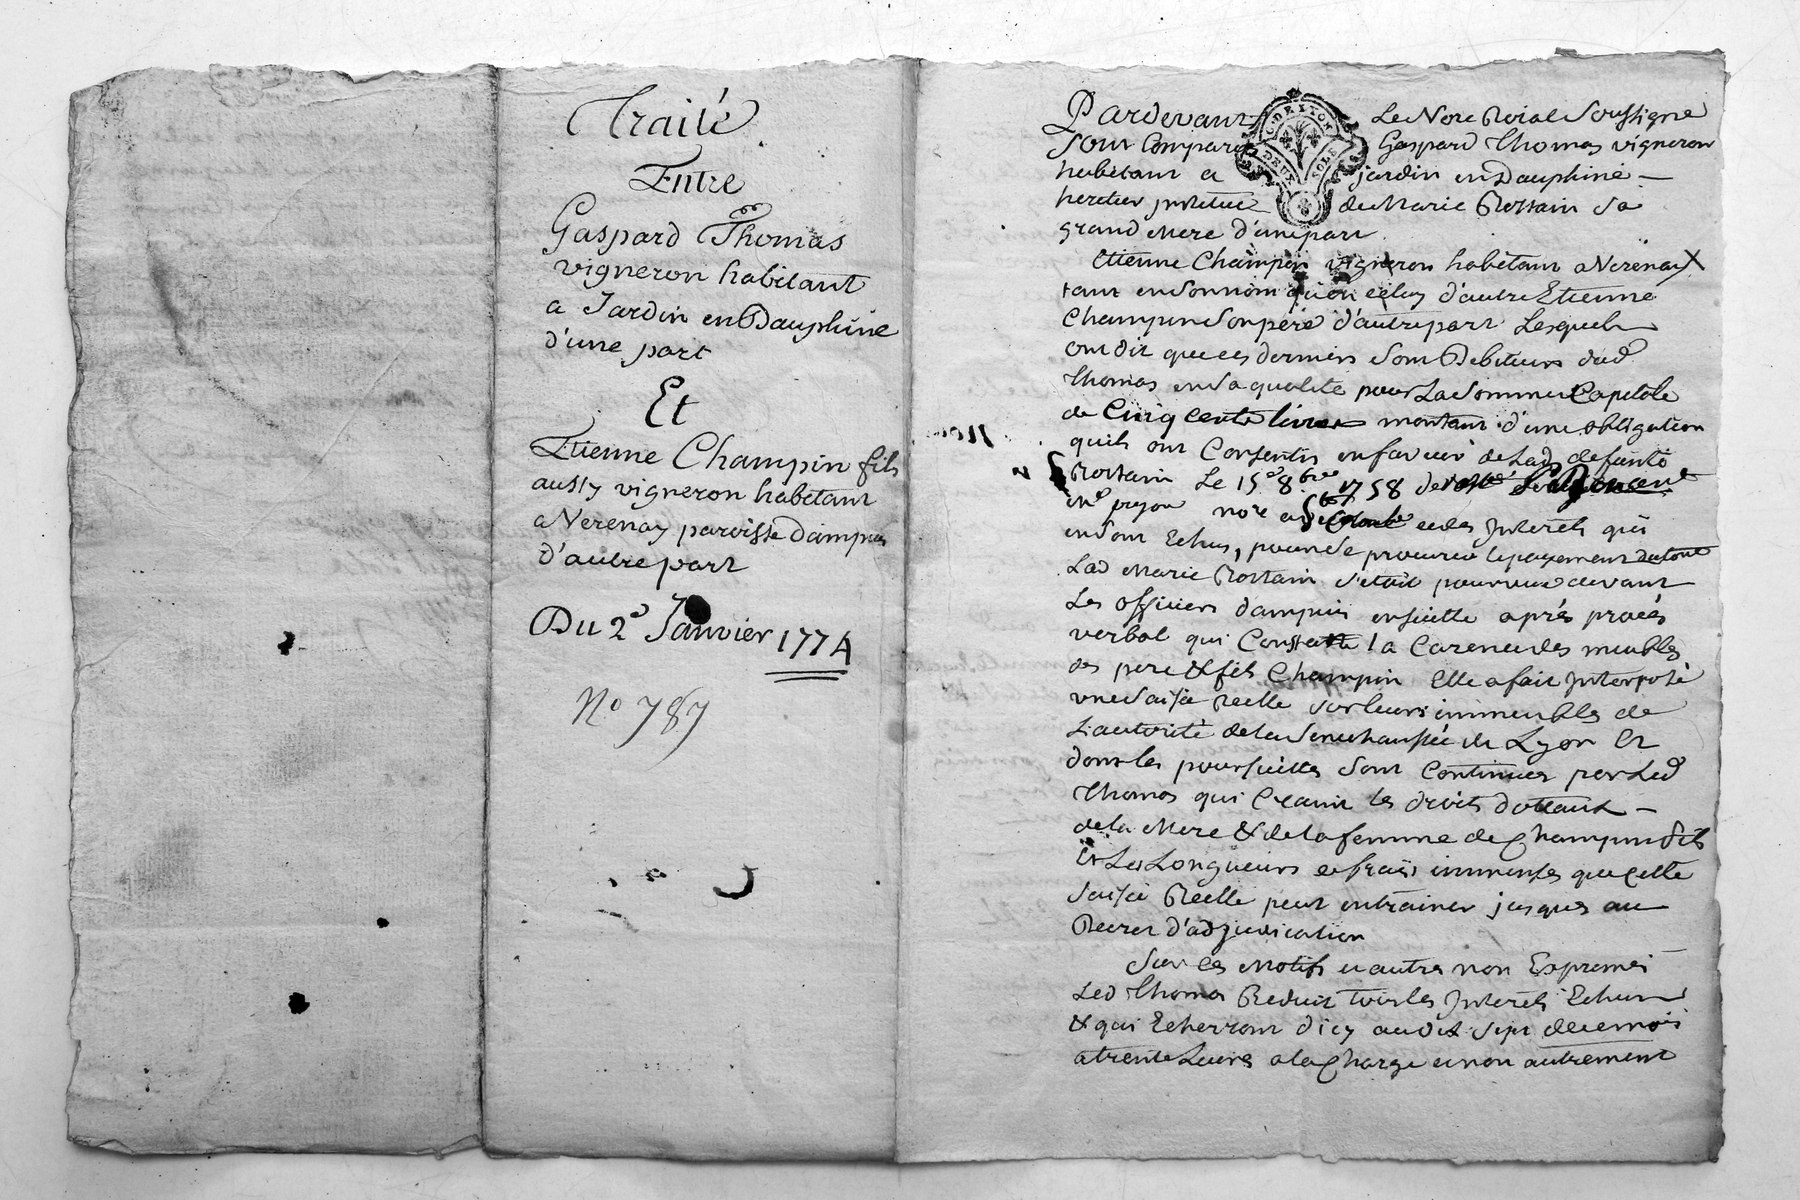 Traité
Entre
Gaspard Thomas
vigneron habitant
a Jardin en Dauphine
d'une part
Et
Etienne Champin fils
aussy vigneron habitant
a Verenay paroisse dampuis
d'autre part
Du 2e Janvier 1774
No 787
Pardevant Le Nore Roial Soussigne
Sont Comparus Gaspard Thomas vigneron
habitant a jardin en Dauphiné
heretier institué de Marie Rostain sa
grand Mere d'une part
G. DE LYON
DEUX SOLS
Etienne Champin vigneron habitant a Verenay
tant en son nom qu'en celuy d'autre Etienne
Champin son pere d'autre part Lesquels
ont dit que ces derniers sont Debiteurs dud
Thomas en sa qualité pour La somme Capitale
de Cinq cents livres montant d'une obligation
quils ont Consentis en faveur de Lad defunte
Rostain Le 15e 8bre 1758
nore
en sont Echus, pour se procurer le payement du tout
Lad Marie Rostain s'etait pourvue devant
Les officiers dampuis ensuitte après procès
verbal qui Constatte la Carence des meubles
des pere & fils Champin Elle a fait Interposé
une Saisie reelle sur leurs immeubles de
L'autorité de la Senechaussée de Lyon Et
dont les poursuittes sont Continuées par Led
Thomas qui Craint les droits dotaux
de la Mere & de la femme de Champin fils
Et Les Longueurs et frais immenses que cette
Saisie Reelle peut entrainer jusques au
Decret d'adjudication
Sur ces Motifs et autres non Exprimés
Led Thomas Reduit tous les Interets Echus
& qui Echerront d'icy au dix sept de ce mois
a trente Livres a la Charge et non autrement